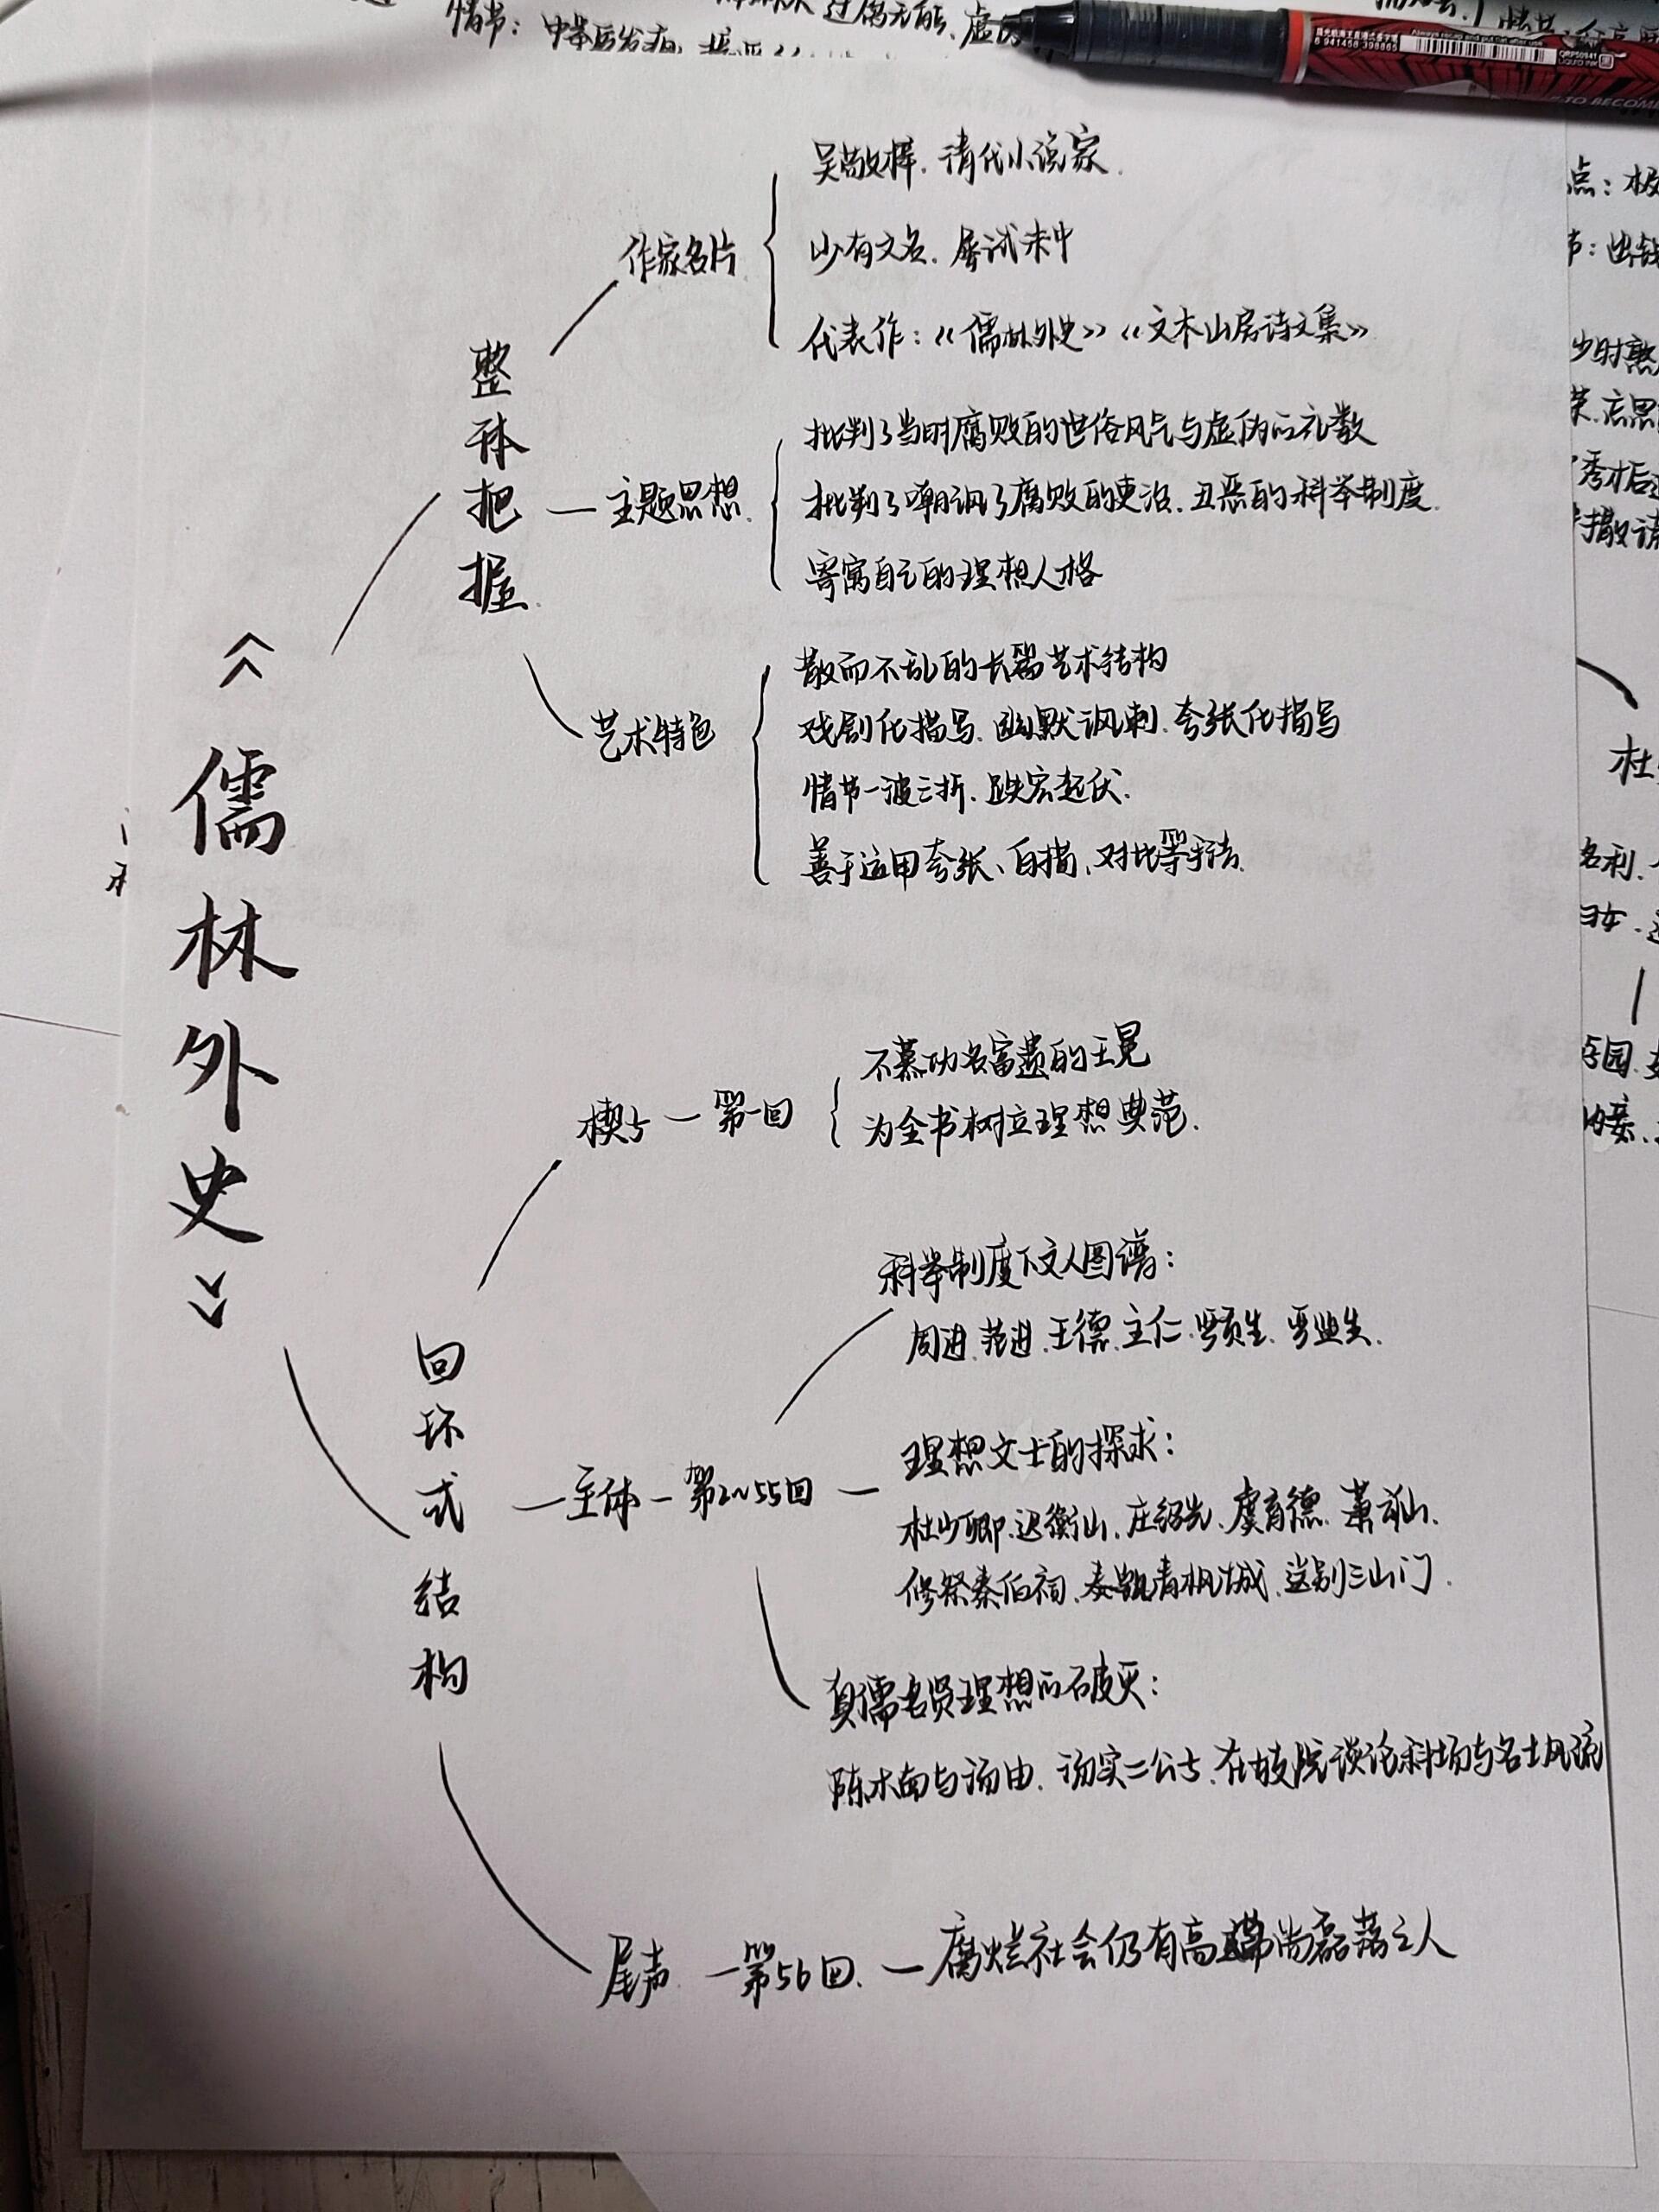 情节：中举后发疯
《儒林外史》
整体把握
作家名片
吴敬梓.清代小说家.
少有文名.屡试未中
代表作：《儒林外史》《文木山房诗文集》
主题思想
批判了当时腐败的世俗风气与虚伪的礼数
批判了嘲讽了腐败的吏治.丑恶的科举制度.
寄寓自己的理想人格
艺术特色
散而不乱的长篇艺术结构
戏剧化描写.幽默讽刺.夸张化描写
情节一波三折.跌宕起伏.
善于运用夸张、白描、对比等手法.
回环式结构
楔子 — 第一回
不慕功名富贵的王冕
为全书树立理想典范.
主体 — 第2~55回
科举制度下文人图谱：
周进.范进.王德.王仁.严贡生.严监生.
理想文士的探求：
杜少卿.迟衡山.庄绍光.虞育德.萧云仙.
修祭泰伯祠.奏凯青枫城.送别三山门.
真儒名贤理想的破灭：
陈木南与汤由.汤实二公子.在妓院谈论科场与名士风流
尾声 — 第56回. — 腐烂社会仍有高尚磊落之人
点：极
少时熟
秀才后
名利.
妇女.